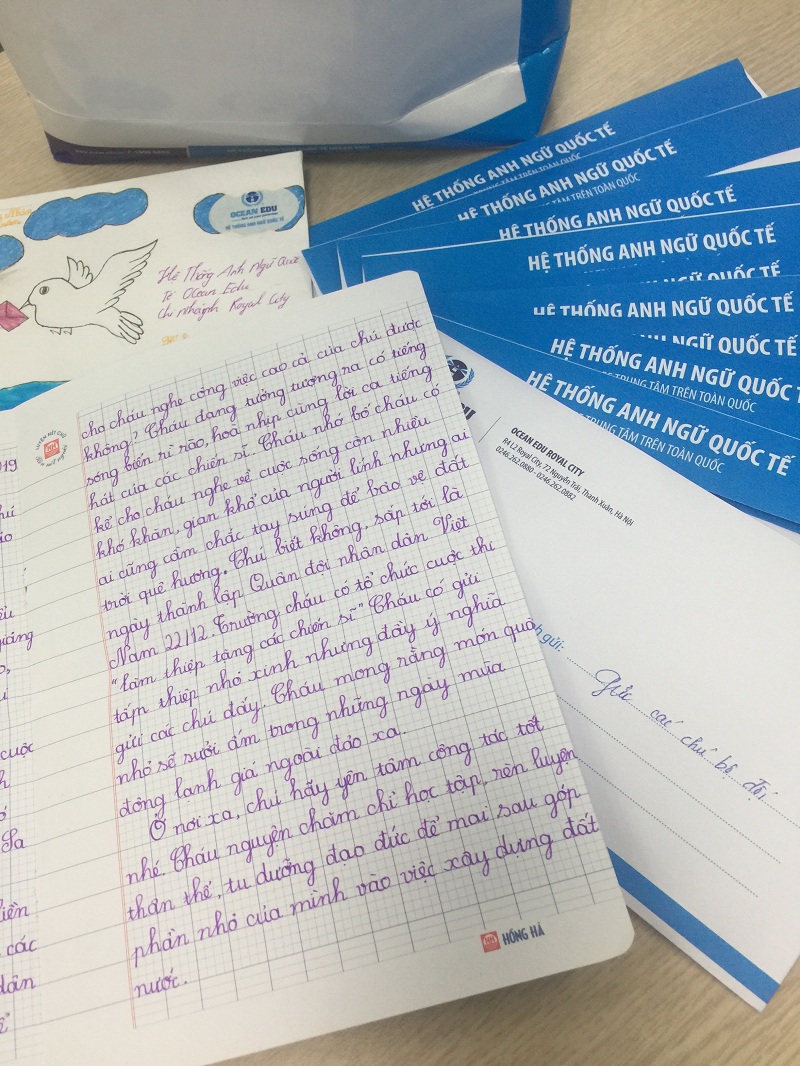 HỆ THỐNG ANH NGỮ QUỐC TẾ
TRUNG TÂM TRÊN TOÀN QUỐC
HỆ THỐNG ANH NGỮ QUỐC TẾ
TRUNG TÂM TRÊN TOÀN QUỐC
HỆ THỐNG ANH NGỮ QUỐC TẾ
HỆ THỐNG ANH NGỮ QUỐC TẾ
HỆ THỐNG ANH NGỮ QUỐC TẾ
HỆ THỐNG ANH NGỮ QUỐC TẾ
HỆ THỐNG ANH NGỮ QUỐC TẾ
TRUNG TÂM TRÊN TOÀN QUỐC
OCEAN EDU
HỆ THỐNG ANH NGỮ QUỐC TẾ
Hệ Thống Anh Ngữ Quốc
Tế Ocean Edu
Chi nhánh Royal City
cho cháu nghe công việc cao cả của chú được
không? Cháu đang tưởng tượng ra có tiếng
sóng biển rì rào, hoà nhịp cùng lời ca tiếng
hát của các chiến sĩ. Cháu nhớ bố cháu có
kể cho cháu nghe về cuộc sống còn nhiều
khó khăn, gian khổ của người lính nhưng ai
ai cũng cầm chắc tay súng để bảo vệ đất
trời quê hương. Chú biết không, sắp tới là
ngày thành lập Quân đội nhân dân Việt
Nam 22/12. Trường cháu có tổ chức cuộc thi
"làm thiệp tặng các chiến sĩ" Cháu có gửi
tấm thiệp nhỏ xinh nhưng đầy ý nghĩa
gửi các chú đấy. Cháu mong rằng món quà
nhỏ sẽ sưởi ấm trong những ngày mùa
đông lạnh giá ngoài đảo xa.
Ở nơi xa, chú hãy yên tâm công tác tốt
nhé. Cháu nguyện chăm chỉ học tập, rèn luyện
thân thể, tu dưỡng đạo đức để mai sau góp
phần nhỏ của mình vào việc xây dựng đất
nước.
HỒNG HÀ
OCEAN EDU ROYAL CITY
R4 L2 Royal City, 72 Nguyễn Trãi, Thanh Xuân, Hà Nội
0246.262.0880 - 0246.262.0882
gửi:
Gửi các chú bộ đội
19
cuộc
Sa
các
dân